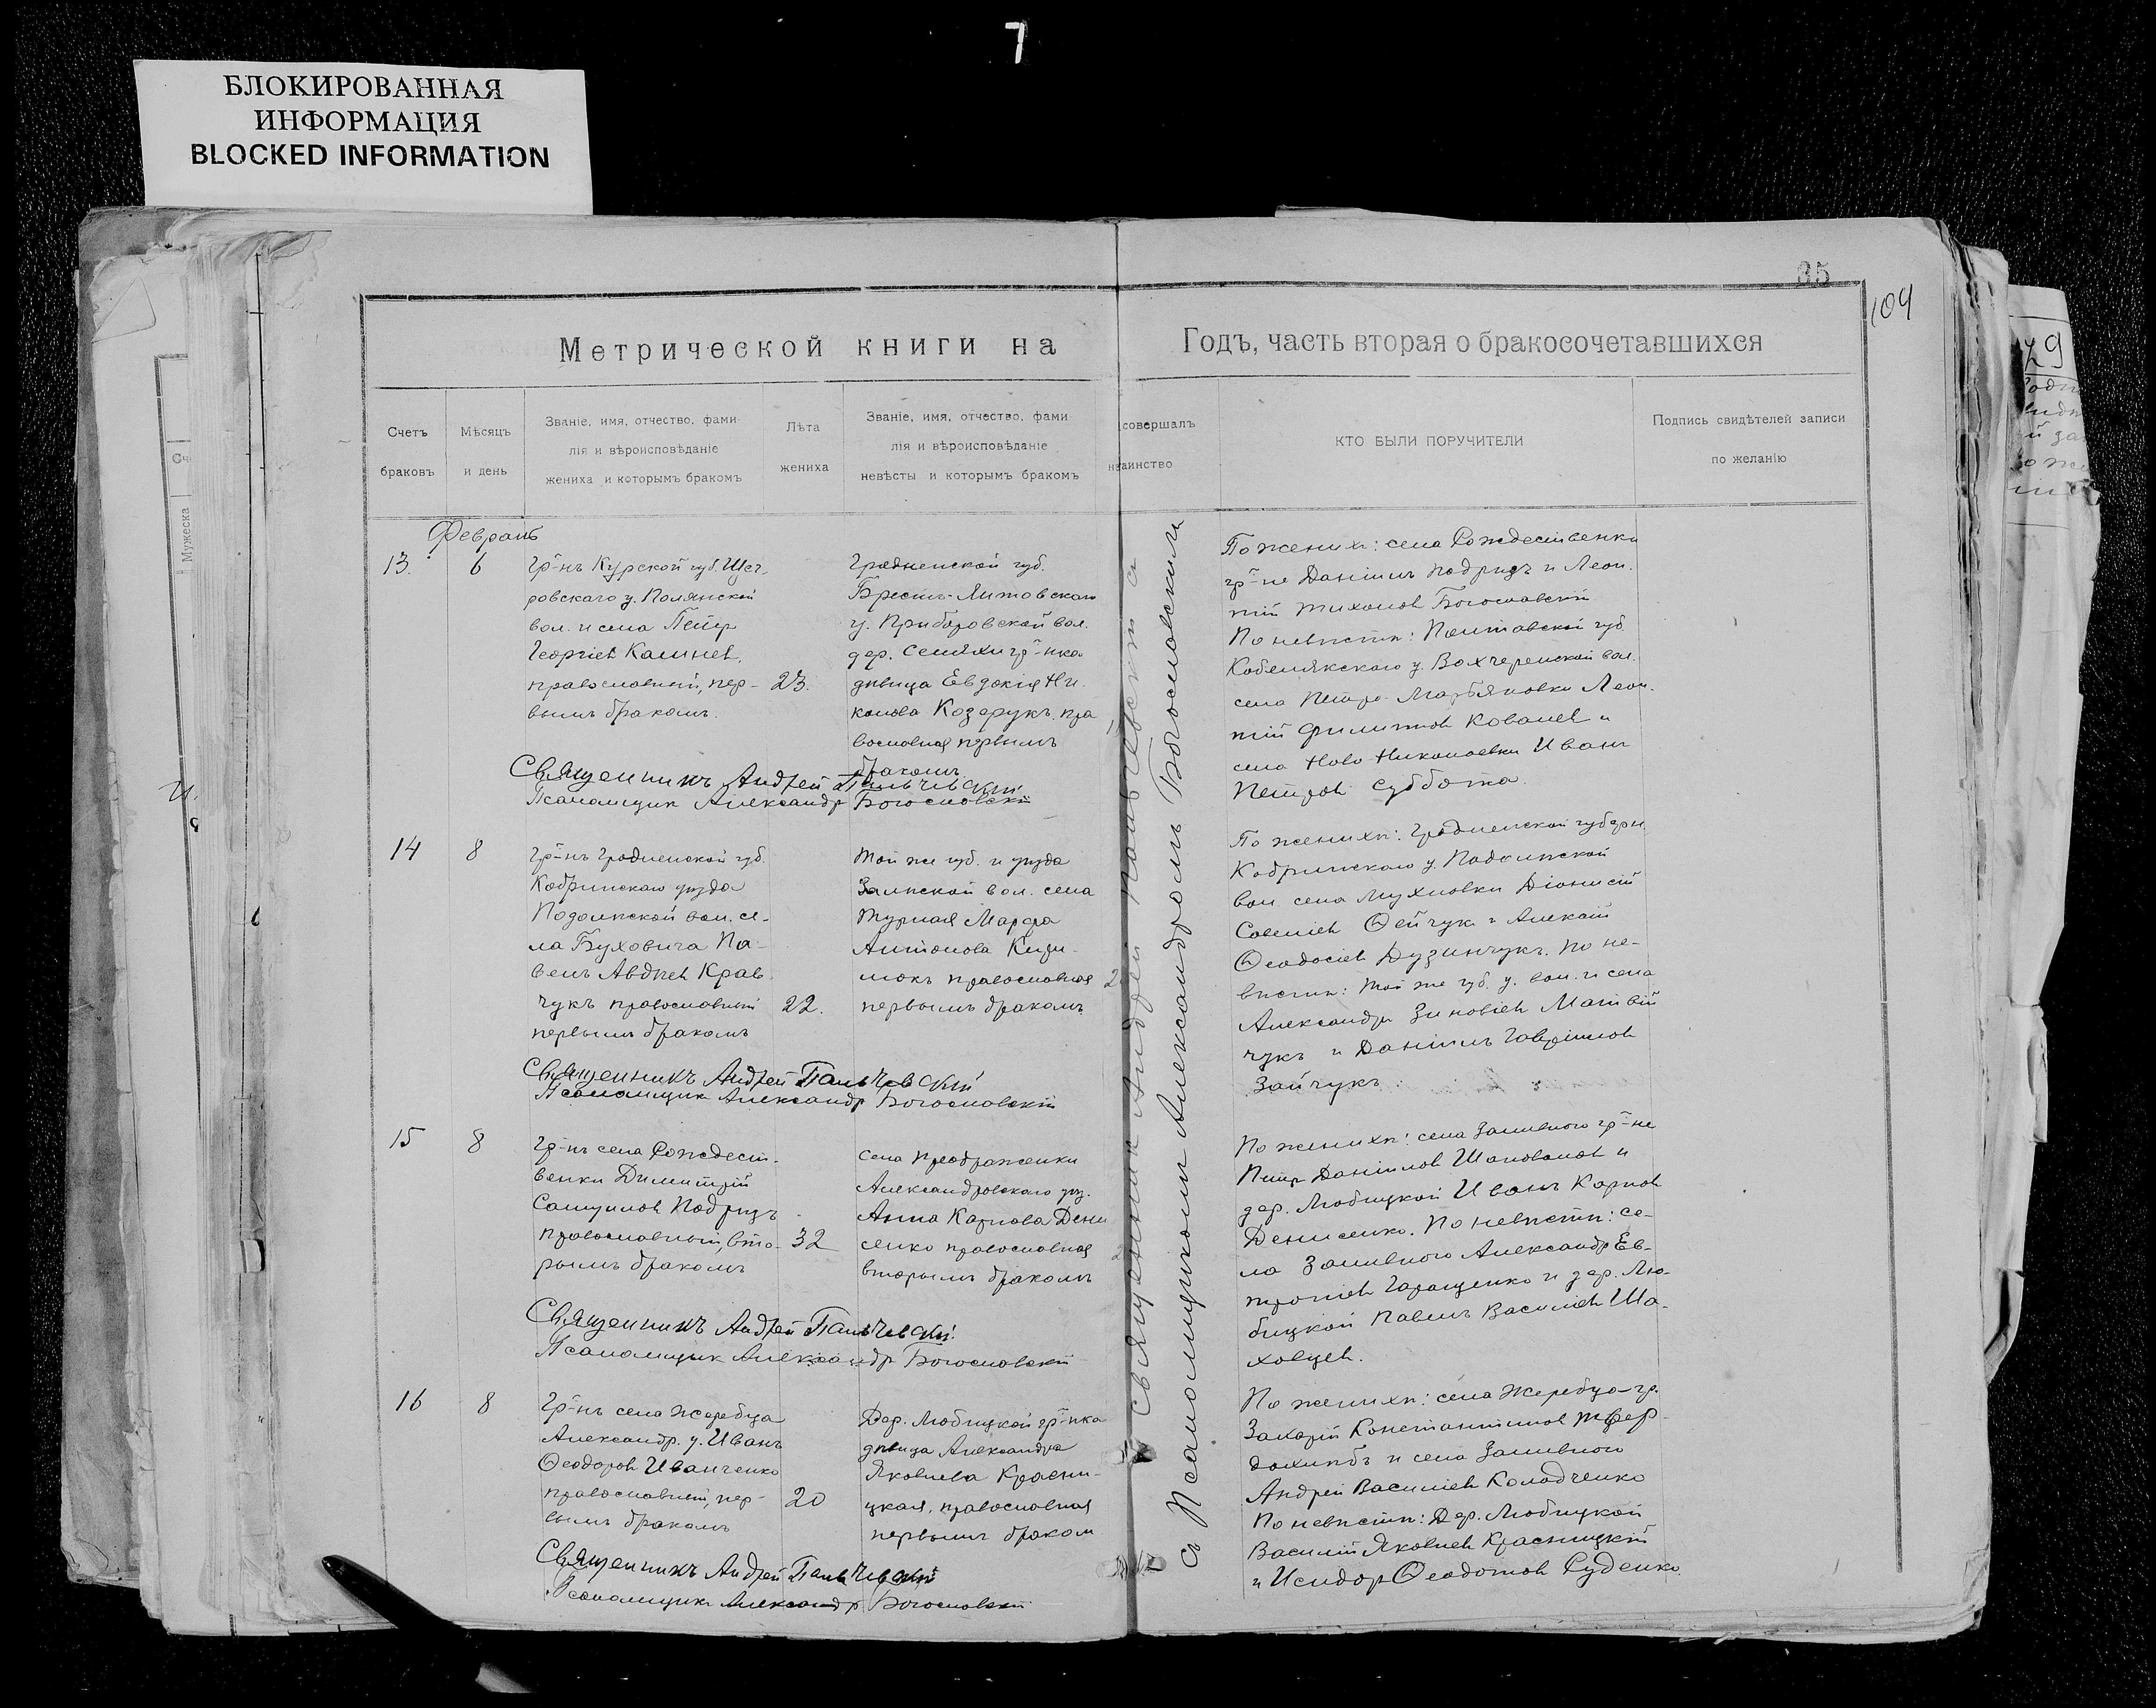 7
БЛОКИРОВАННАЯ
ИНФОРМАЦИЯ
BLOCKED INFORMATION
35
104
Метрической книги на
Годъ, часть вторая о бракосочетавшихся
Счетъ
браковъ
Мѣсяцъ
и день
Званіе, имя, отчество, фами-
лія и вѣроисповѣданіе
жениха и которымъ бракомъ
Лѣта
жениха
Званіе, имя, отчество, фами
лія и вѣроисповѣданіе
невѣсты и которымъ бракомъ
совершалъ
таинство
КТО БЫЛИ ПОРУЧИТЕЛИ
Подпись свидѣтелей записи
по желанію
Февраль
13.
6
Гр-нъ Курской губ. Щег
ровскаго у. Полянской
вол. и села Петр
Георгіев Калинев,
православный, пер-
вымъ бракомъ.
23.
Гродненской губ.
Брестъ-Литовскаго
у. Приборовской вол.
дер. Селяхи гр-нка
дѣвица Евдокія Ни-
конова Козерукъ пра
вославная первымъ
бракомъ.
По женихѣ: села Рождественки
гр-не Даніилъ Подридъ и Леон.
тій Тихонов Богославскій
По невѣстѣ: Полтавской губ.
Кобелякскаго у. Вахчеренской вол.
села Петро-Марьяновки Леон.
тій Филиппов Ковалев и
села Ново Николаевки Иванъ
Петров Суббота.
Священникъ Андрей Пальчевскій
Псаломщик Александр Богословскій
14
8
Гр-нъ Гродненской губ.
Кобринскаго уѣзда
Подолѣской вол. се-
ла Буховича Па-
велъ Авдѣев Крав
чукъ православный
первымъ бракомъ
22.
Той же губ. и уѣзда
Залѣской вол. села
Турная Марфа
Антонова Кици-
мокъ православная
первымъ бракомъ
По женихѣ: Гродненской губерн.
Кобринскаго у. Подолѣской
вол. села Мухловки Діонисій
Савеліев Ѳейчук и Алексѣй
Ѳеодосіев Дузинчукъ. По не-
вѣстѣ: Той же губ. у. вол. и села
Александр Зиновіев Матвій
чукъ и Даніилъ Гавріилов
Зайчукъ
Священникъ Андрей Пальчевскій
Псаломщик Александр Богословскій
15
8
Гр-нъ села Рождест-
венки Димитрій
Самуилов Подридъ
православный, вто-
рымъ бракомъ
32
Села Преображенки
Александровскаго уѣз.
Анна Карпова Дени
сенко православная
вторымъ бракомъ
По женихѣ: села Заливного гр-не
Петр Даніилов Шаповалов и
дер. Любицкой Иванъ Карпов
Денисенко. По невѣстѣ: се-
ла Заливного Александр Ев-
тропіев Геращенко и дер. Лю-
бицкой Павелъ Василіев Ша-
ховцев.
Священникъ Андрей Пальчевскій
Псаломщик Александр Богословскій
16
8
Гр-нъ села Жеребца
Александр. у. Иванъ
Ѳеодоров Иванченко
православный, пер-
вымъ бракомъ
20
Дер. Любицкой гр-нка
дѣвица Александра
Яковлева Красни-
цкая, православная
первымъ браком
По женихѣ: села Жеребца гр.
Захарій Константинов Твер-
дохлѣбъ и села Заливного
Андрей Василіев Колодченко
По невѣстѣ: Дер. Любицкой
Василій Яковлев Красницкій
и Исидор Ѳеодотов Руденко.
Священникъ Андрей Пальчевскій
Псаломщик Александр Богословскій
Священник Андрей Пальчевскій
съ Псаломщикомъ Александромъ Богословскимъ